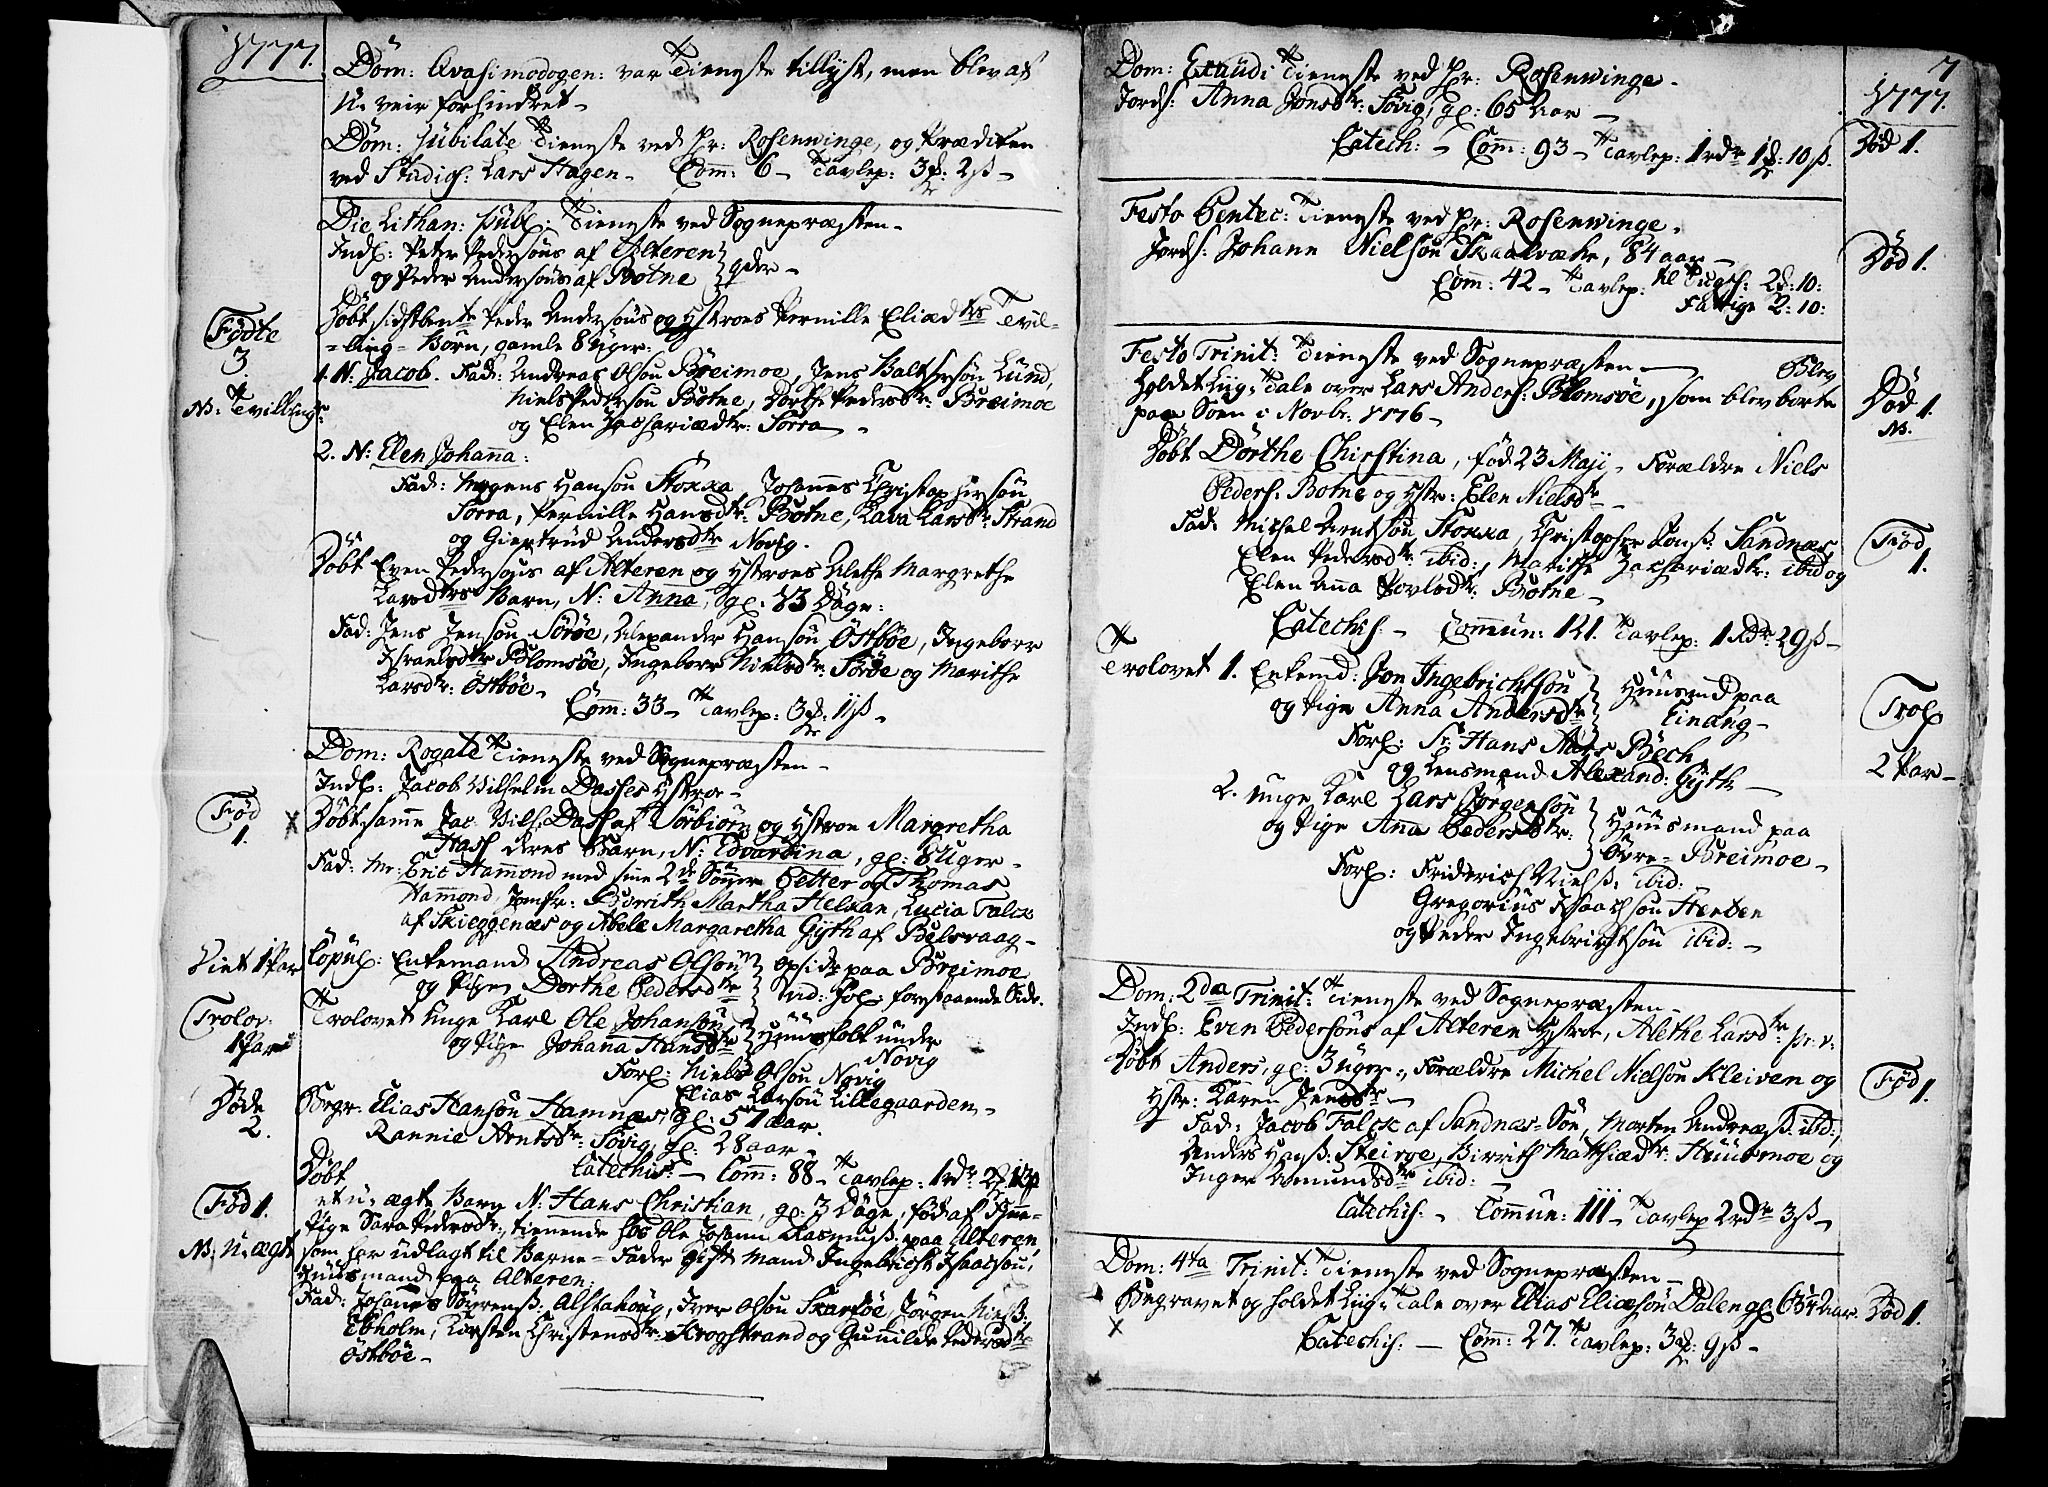 1777.
Dom: Qvasimodogen: var Tieneste tillyst, men blev af
U-veir forhindret -
Dom: Jubilate Tieneste ved Hr: Rosenwinge, og Prædiken
ved Studios: Lars Hagen - Com: 6 - Tavlep: 3 2ß -
Die Lithan: publ: Tieneste ved Sognepræsten -
Indl: Peter Pedersöns af Alteren
og Peder Andersöns af Botne
Födte
3.
Döbt sidstbente Peder Andersöns og Hstroes Pernille Eliædtrs Tvil-
=ling-Born, gamle 8 Uger:
NB: Tvillinge
1. N: Jacob. Fad: Andreas Olsön Breimoe, Jens Balthersön Lund,
Niels Pedersön Botne, Dorthe Pedersdtr: Breimoe
og Elen Zachariædtr: Sörra -
2. N: Elen Johanna:
Fad: Mogens Hansön Stoxxa, Johannes Christophersön
Sorra, Pernille Hansdtr: Botne, Lava Larsdtr: Strand
og Giertrud Andersdtr Novig.
Döbt Even Pedersöns af Alteren og Hstroes Alethe Margrethe
Larsdtrs Barn, N: Anna, gl: 13 Dage:
Fad: Jens Jensön Söröe, Alexander Hansön Östböe, Ingeborr
Israelsdtr Blomsöe, Ingeborr Nielsdtr: Söröe og Marithe
Larsdtr: Östböe -
Com: 33 - Tavlep: 3 11ß -
Dom: Rogate Tieneste ved Sognepræsten -
Indl: Jacob Wilhelm Dasses Hstroe -
Föd
1.
Döbt samme Jac: Vilh: Dass af Sörbiörn og Hstroe Margretha
Hass deres Barn, N: Edvardina, gl: 8 Uger -
Fad: Mr: Eric Hammond med sine 2de Sönner Petter og Thomas
Hammond, Jomfr: Martha Helxan, Lucia Falck
af Skieggenæs og Abele Margaretha Gyth af Belsvaag -
Viet 1 Par
Copul: Enkemand Andreas Olsön
og Pige Dorthe Pedersdtr
Opsidr paa Breimoe
vid: Fol: forestaaende Side.
Trolov:
1 Par
Trolovet Unge Karl Ole Johansön
og Pige Johana Hansdtr
Huusfolk under
Novig
Forl: Niels Olsön Novig
Elias Larsön Lillegaarden -
Döde
2.
Begr: Elias Hansön Hamnæs, gl: 57 aar.
Rannie Arntsdtr: Sövig, gl: 28 aar -
Catechis: - Com: 88 - Tavlep: 1rdr
Föd 1.
Döbt
et u-ægte Barn N: Hans Christian, gl: 3 Dage, föd af
Pige Sara Pedersdtr: tienende hos Ole Johan Rasmusß: paa Alteren,
NB: U-ægte
som har udlagt til Barne-Fader gift Mand Ingebricht Isaachsön,
Huusmand paa Alteren:
Fad: Johanes Sörrensß: Alstahoug, Iver Olsön Skaröe, Jörgen Nielsß:
Ebholm, Kirsten Christensdtr: Krogstrand og Gunilde Pedersdtr
Östböe -
7
1777.
Dom: Exaudi Tieneste ved Hr: Rosenwinge -
Jords: Anna Jonsdtr: Sövig, gl: 65 Aar -
Död 1.
Catech: - Com: 93 - Tavlep: 1rdr 1 10ß.
Festo Pentec: Tieneste ved Hr: Rosenwinge.
Jords: Johann Nielsön Skaalvæhr, 84 aar -
Död 1.
Com: 42 - Tavlep: til Tugth: 2: 10:
Fattige 2: 10:
Festo Trinit: Tieneste ved Sognepræsten - Blev
holdet Liig-Tale over Lars Anders: Blomsöe, som blev borte
Död 1.
NB.
paa Söen i Novbr: 1776 -
Döbt Dörthe Chirstina, föd 23 Maji - Forældre Niels
Peders: Botne og Hstr: Elen Nielsdtr -
Föd
1.
Fad: Michel Arntsön Stoxxa, Christopher Jonsß: Sandnæs
Elen Pedersdtr: ibid:, Marithe Zachariædtr: ibid og
Elen Ana Povlsdtr: Botne -
Catechis: - Commun: 121. Tavlep: 1 Rdr 29ß -
Trolovet 1. Enkemd: Jon Ingebrichtsön
og Pige Anna Andersdtr
Huusmd paa
Einang -
Trol
2 Par -
Forl: Sr: Hans Aars Böch
og Lensmand Alexand: Gyth -
2. Unge Karl Lars Jörgensön
og Pige Ana Pedersdtr:
Huusmand paa
Övre-Breimoe -
Forl: Friderich Nielsß: ibid:
Gregorius Isaachsön Stenten
og Peder Ingebrichtsön ibid: -
Dom: 2da Trinit: Tieneste ved Sognepræsten -
Indl: Even Pedersöns af Alteren Hstroe, Alethe Larsdtr
Döbt Anders, gl: 3 Uger -, Forældre Michel Nielsön Kleiven og
Föd 1.
Hstr: Karen Jensdtr -
Fad: Jacob Falck af Sandnæs-Söe, Morten Andreæß: ibid:,
Anders Hansß: Steiroe, Birrith Matthiædtr: Huusmoe og
Inger Amundsdtr ibid: -
Catechis: - Commun: 111 - Tavlep 2rdr 3ß -
Dom: 4ta Trinit: Tieneste ved Sognepræsten -
Begravet og holdet Liig-Tale over Elias Eliæsön Dalen gl: 63 1/4 Aar.
Död 1.
Catechis: - Com: 27. Tavlep: 3 9ß -